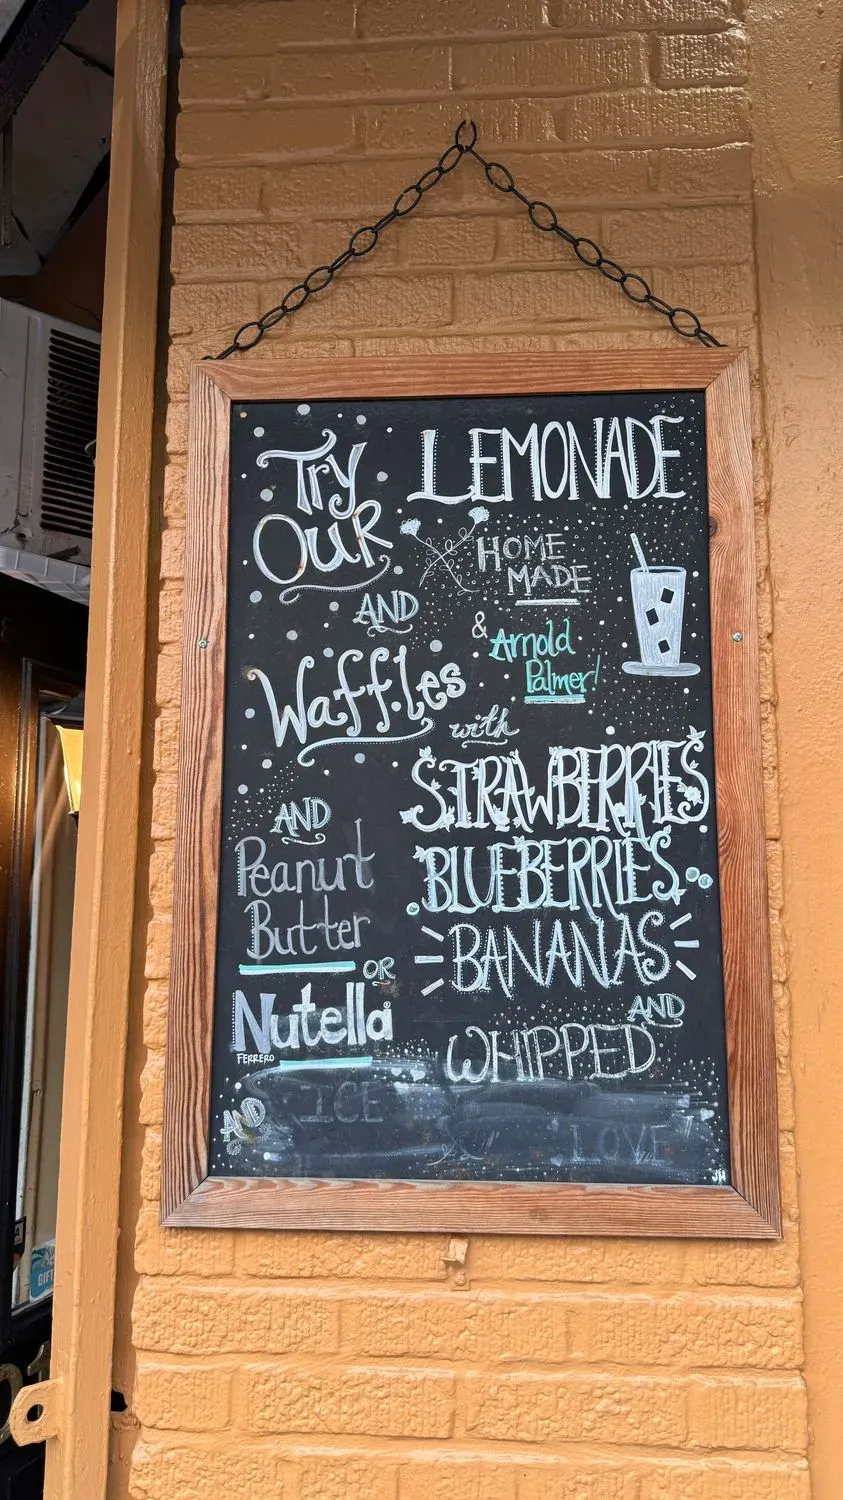 Try
Our
LEMONADE
HOME
MADE
& Arnold
Palmer!
AND
Waffles
with
STRAWBERRIES
BLUEBERRIES
BANANAS
AND
WHIPPED
AND
Peanut
Butter
OR
Nutella
FERRERO
AND
ICE
LOVE
JH
GIFT